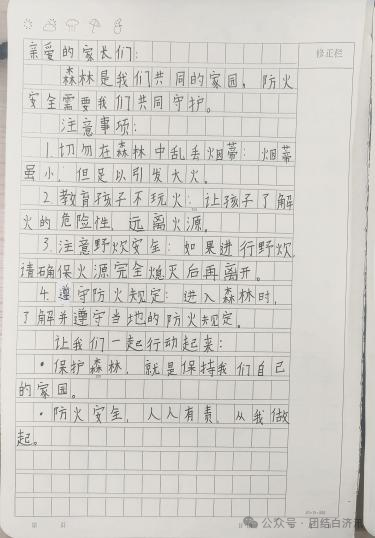 修正栏
亲爱的家长们：
森林是我们共同的家园，防火
安全需要我们共同守护。
注意事项：
1.切勿在森林中乱丢烟蒂：烟蒂
虽小，但足以引发大火。
2.教育孩子不玩火：让孩子了解
火的危险性，远离火源。
3.注意野炊安全：如果进行野炊，
请确保火源完全熄灭后再离开。
4.遵守防火规定：进入森林时，
了解并遵守当地的防火规定。
让我们一起行动起来：
·保护森林，就是保持我们自己
的家园。
·防火安全，人人有责，从我做
起。
第 页
公众号·团结白济汛